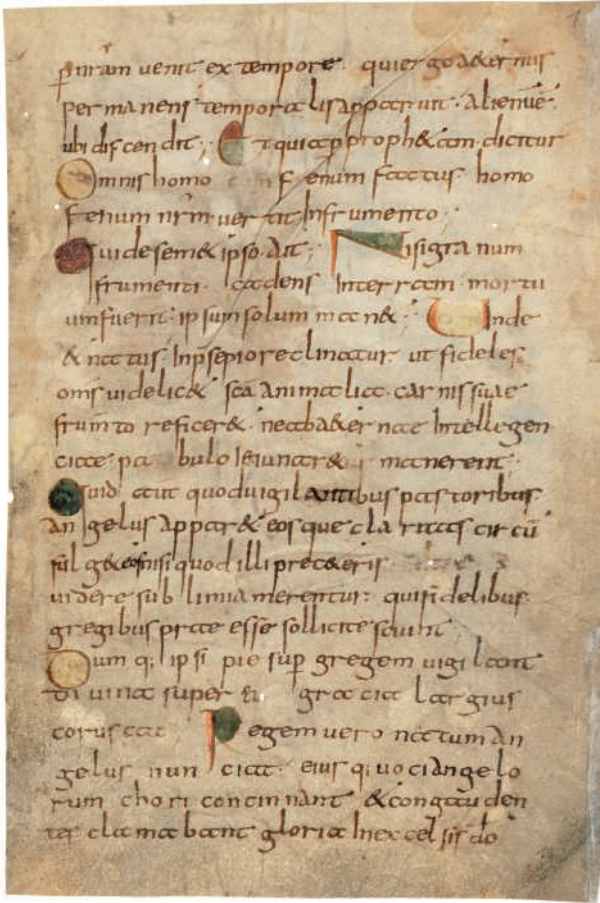 p niram uenit ex tempore. qui ergo a&ernus
permanens temporalis apparuit. alienūe.
ubi discendit; Et quia p proph&am dicitur
Omnis homo fenum factus homo
fenum nrm uertit In frumento;
Qui de sem& ipso. Ait; Nisi granum
frumenti. cadens Interram mortu
um fuerit: ipsum solum man&. Unde
& natus. Inpsepio reclinatur. ut fideles
oms uidelic& sca animalia. carnis suae
frumto reficer&. ne aba&ernae Intellegen
ciae pa bulo Ieiuna r& manerent.
Quid aut quod uigilantibus pastoribus
angelus appar& eosque claritas circū
ful g& nisi quod illi prec&eris
uidere sub limia merentur: qui fidelibus
gregibus prae esse sollicite sciunt;
Dum q; ipsi pie sup gregem uigilant
diuina super eos gracia largius
coruscat. Regem uero natum an
gelus nun ciat: eius q; uoci angelo
rum chori concinnant &congauden
ter clamabant gloria Inexcelsis do